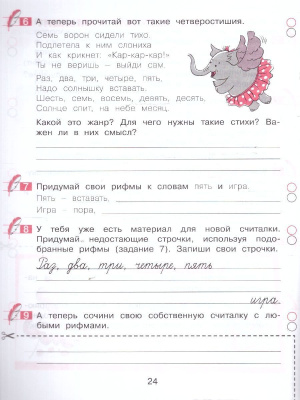 6 А теперь прочитай вот такие четверостишия.
Семь ворон сидели тихо.
Подлетела к ним слониха
И как крикнет: «Кар-кар-кар!»
Ты не веришь – выйди сам.
Раз, два, три, четыре, пять,
Надо солнышку вставать.
Шесть, семь, восемь, девять, десять,
Солнце спит, на небе месяц.
Какой это жанр? Для чего нужны такие стихи? Ва-
жен ли в них смысл?
7 Придумай свои рифмы к словам пять и игра.
Пять – вставать,
Игра – пора,
8 У тебя уже есть материал для новой считалки.
Придумай недостающие строчки, используя подо-
бранные рифмы (задание 7). Запиши свои строчки.
Раз, два, три, четыре, пять
игра.
9 А теперь сочини свою собственную считалку с лю-
быми рифмами.
24